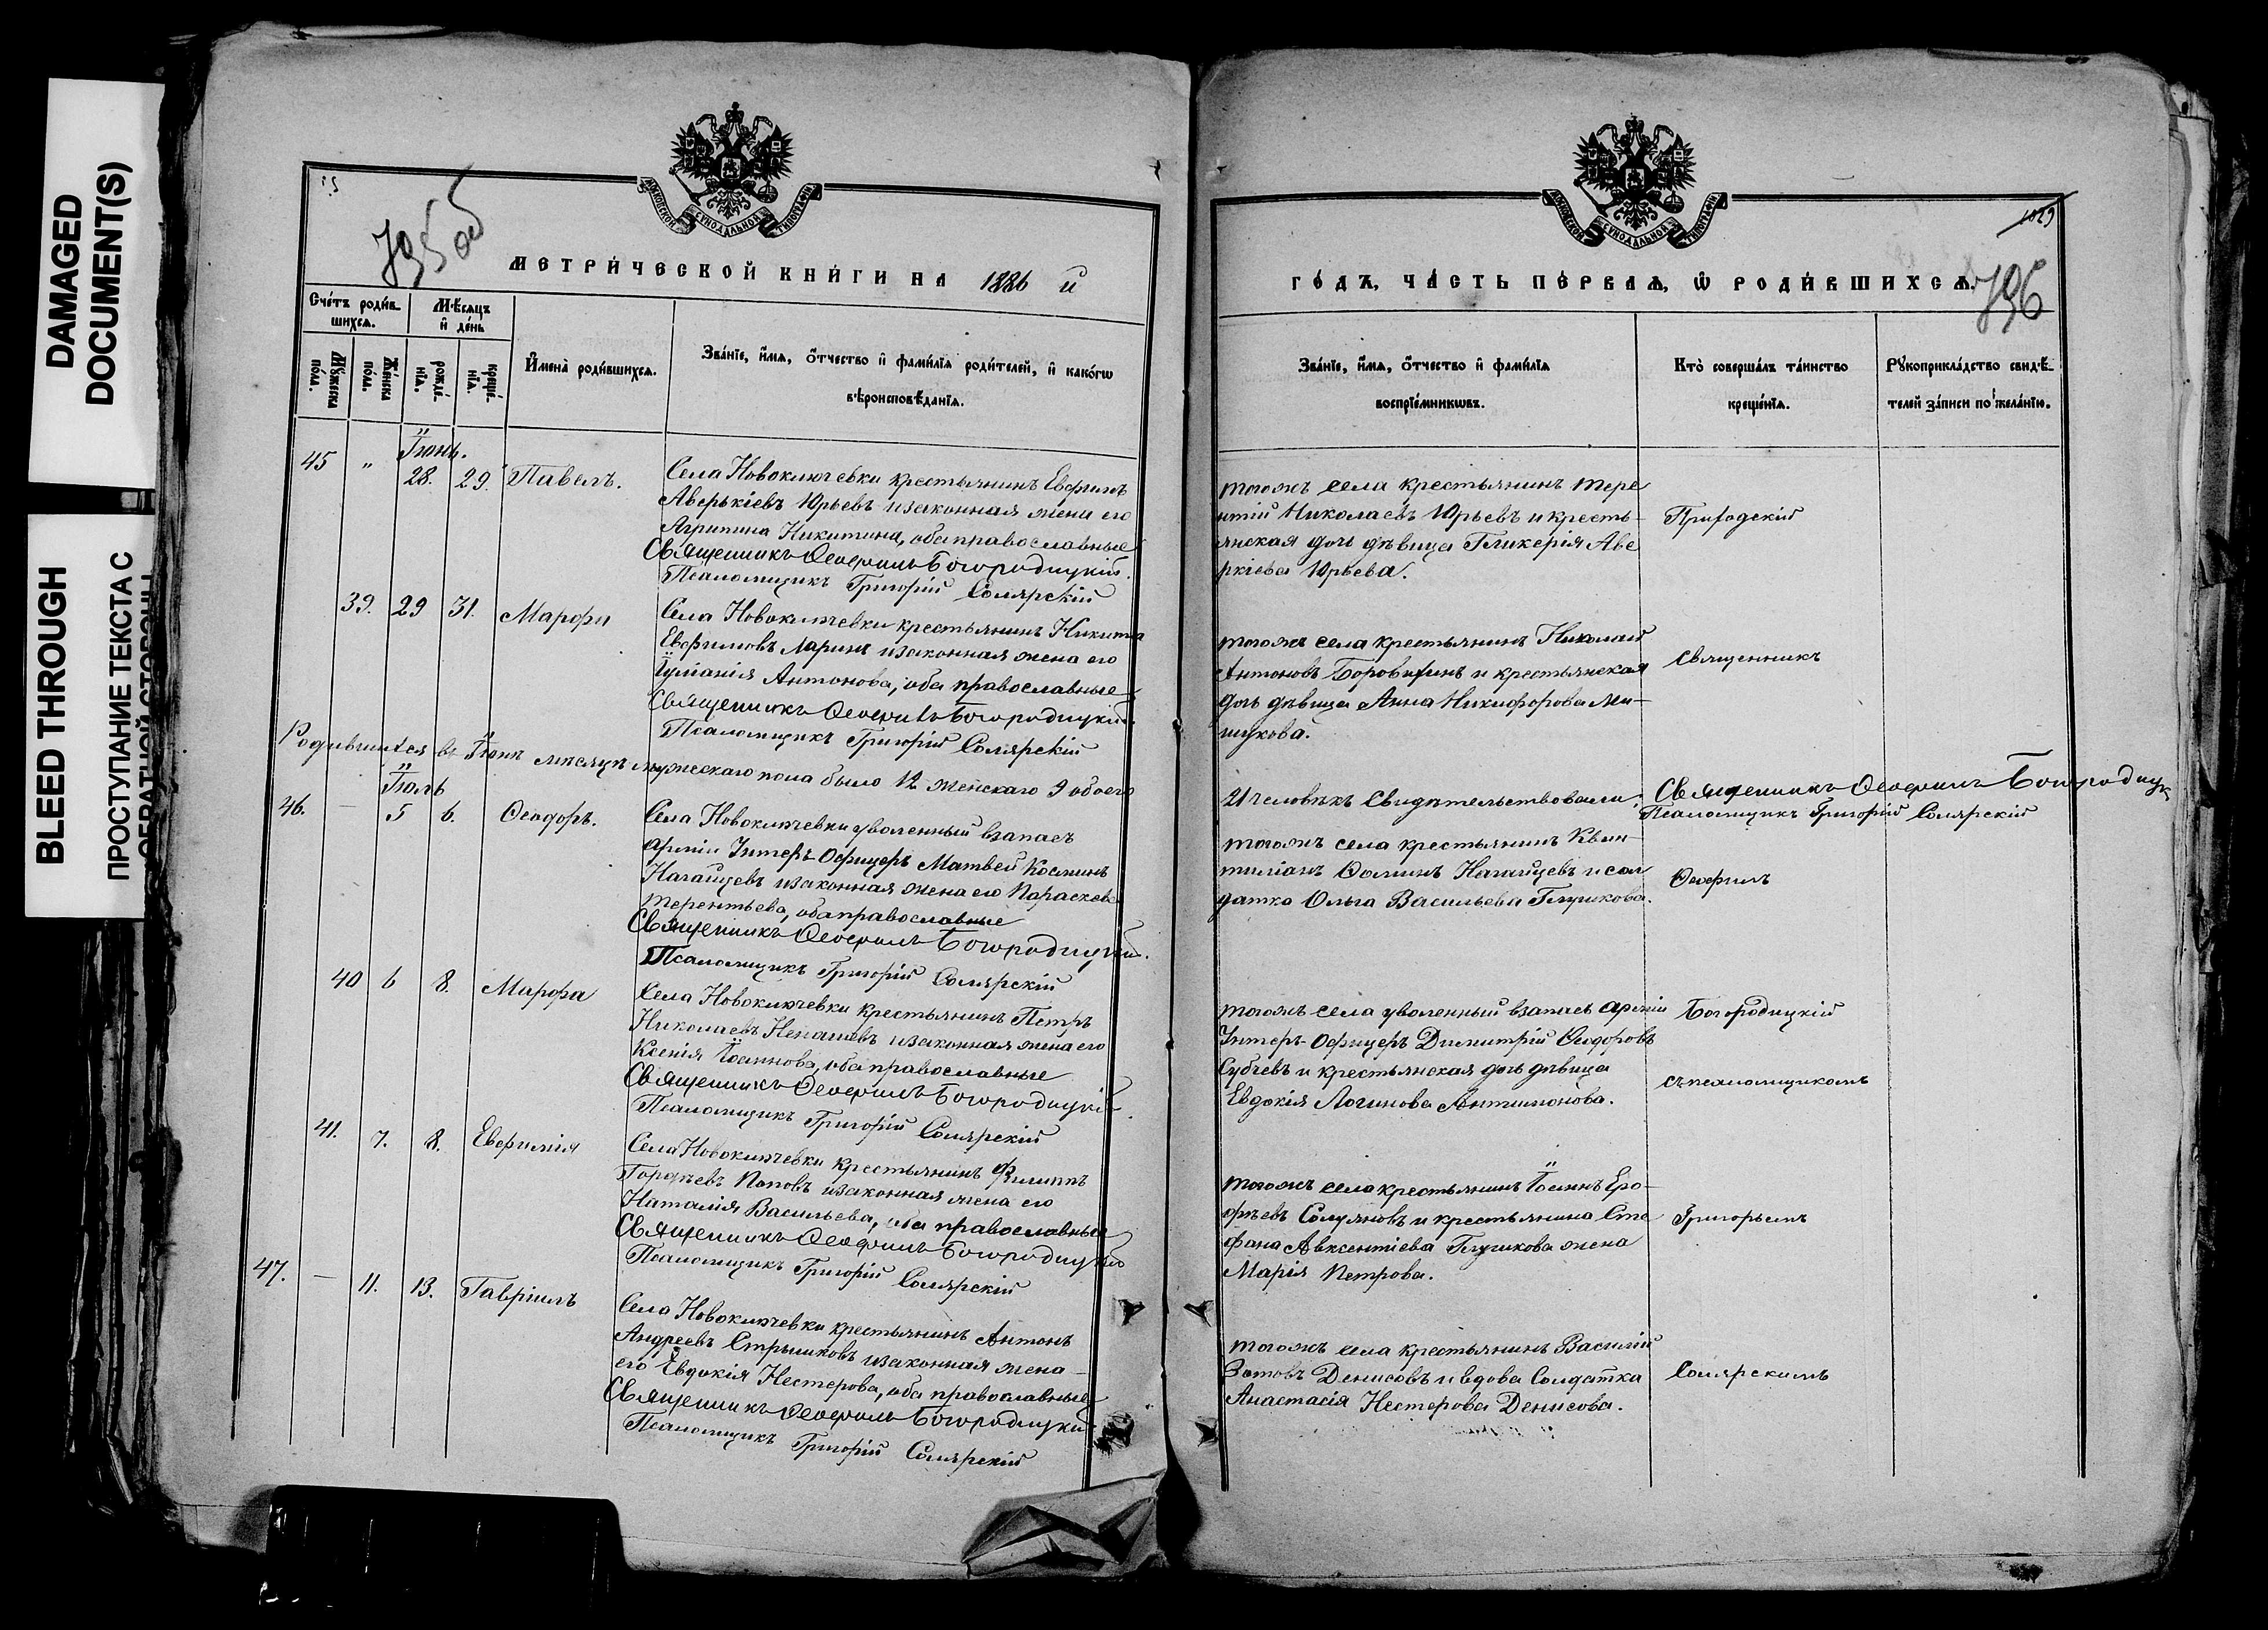 DAMAGED
DOCUMENT(S)
BLEED THROUGH
ПРОСТУПАНИЕ ТЕКСТА С
ОБРАТНОЙ СТОРОНЫ
795 об
МОСКОВСКОЙ СѴНОДАЛЬНОЙ ТИПОГРАФІИ
МЕТРИ́ЧЕСКОЙ КНИ́ГИ НА 1886 й
Сче́тъ роди́в-
шихсѧ.
Мѣ́сѧцъ
и҆ де́нь
Мꙋ́жеска
по́ла.
Же́нска
по́ла.
рожде́-
нїѧ.
креще́-
нїѧ.
И҆мена̀ роди́вшихсѧ.
Зва́нїе, и҆́мѧ, ѻ҆́тчество и҆ фами́лїѧ роди́телей, и҆ како́гѡ
вѣроисповѣ́данїѧ.
Іюнь.
45 „ 28. 29. Павелъ.
Села Новоключевки крестьянинъ Евфимъ
Аверькіевъ Юрьевъ и законная жена его
Агрипина Никитина, оба православные
Священникъ Ѳеофилъ Богородицкій.
Псаломщикъ Григорій Солярскій
39. 29 31. Марфа
Села Новоключевки крестьянинъ Никита
Евфимовъ Ларинъ и законная жена его
Іуліанія Антонова, оба православные
Священникъ Ѳеофилъ Богородицкій
Псаломщикъ Григорій Солярскій
Родившихся въ Іюнѣ мѣсяцѣ мужескаго пола было 12 женскаго 9 обоего
Іюль
46. — 5 6. Ѳеодоръ.
Села Новоключевки уволенный въ запасъ
арміи Унтеръ-Офицеръ Матвей Косминъ
Нагайцевъ и законная жена его Параскева
Терентьева, оба православные
Священникъ Ѳеофилъ Богородицкій.
Псаломщикъ Григорій Солярскій
40 6 8. Марфа
Села Новоключевки крестьянинъ Петръ
Николаевъ Ненашевъ и законная жена его
Ксенія Іоаннова, оба православные
Священникъ Ѳеофилъ Богородицкій.
Псаломщикъ Григорій Солярскій
41. 7. 8. Евфимія
Села Новоключевки крестьянинъ Филиппъ
Гордѣевъ Поповъ и законная жена его
Наталія Васильева, оба православные
Священникъ Ѳеофилъ Богородицкій
Псаломщикъ Григорій Солярскій
47. — 11. 13. Гавріилъ
Села Новоключевки крестьянинъ Антонъ
Андреевъ Стрыжковъ и законная жена
его Евдокія Нестерова, оба православные
Священникъ Ѳеофилъ Богородицкій
Псаломщикъ Григорій Солярскій
1029
796
МОСКОВСКОЙ СѴНОДАЛЬНОЙ ТИПОГРАФІИ
ГО́ДЪ, ЧА́СТЬ ПЕ́РВАѦ, Ѡ҆ РОДИ́ВШИХСѦ.
Зва́нїе, и҆́мѧ, ѻ҆́тчество и҆ фами́лїѧ
воспрїе́мникѡвъ.
Кто̀ соверша́лъ та́инство
креще́нїѧ.
Рꙋкоприкла́дство свидѣ́-
телей за́писи по жела́нїю.
тогожъ села крестьянинъ Тере
нтій Николаевъ Юрьевъ и кресть-
янская дочь дѣвица Гликерія Аве
ркіева Юрьева.
Приходскій
тогожъ села крестьянинъ Николай
Антоновъ Боровихинъ и крестьянская
дочь дѣвица Анна Никифорова Ми-
шукова.
священникъ
21 человѣкъ Свидѣтельствовали: Священникъ Ѳеофилъ Богородицк
Псаломщикъ Григорій Солярскій
тогожъ села крестьянинъ Квин-
тиліанъ Ѳоминъ Нагайцевъ и сол
датка Ольга Васильева Глушкова.
Ѳеофилъ
тогожъ села уволенный въ запасъ арміи
Унтеръ-Офицеръ Димитрій Ѳеодоровъ
Субчевъ и крестьянская дочь дѣвица
Евдокія Логинова Антимонова.
Богородицкій
съ псаломщикомъ
тогожъ села крестьянинъ Іоаннъ Еро-
фѣевъ Солуяновъ и крестьянина Сте
фана Авксентіева Глушкова жена
Марія Петрова.
Григорьемъ
тогожъ села крестьянинъ Василій
Зотовъ Денисовъ и вдова Солдатка
Анастасія Нестерова Денисова.
Солярскимъ